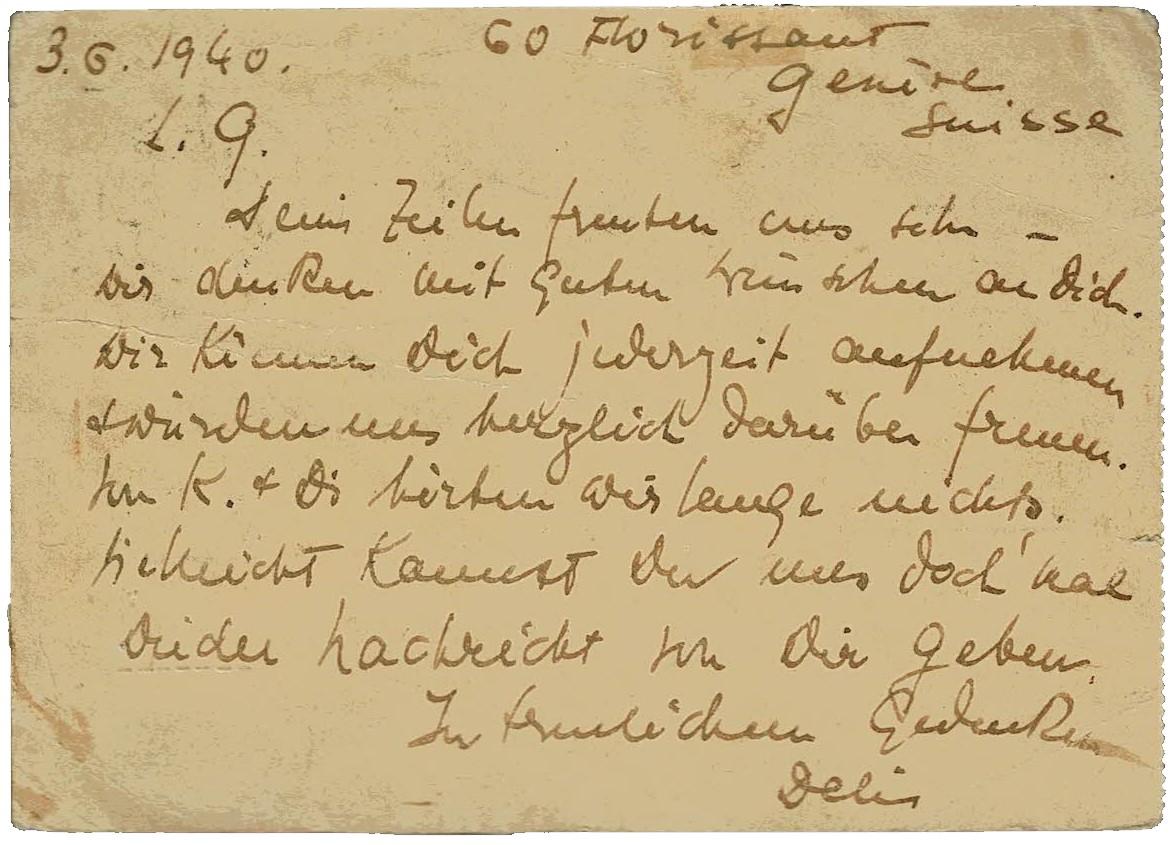 3.6.1940.
60 Florissant
Genève
Suisse
L. G.
Deine Zeilen freuten uns sehr –
wir denken mit guten Wünschen an Dich.
Wir können Dich jederzeit aufnehmen
+ würden uns herzlich darüber freuen.
Von K. + Di hörten wir lange nichts.
Vielleicht kannst Du uns doch mal
wieder Nachricht von Dir geben.
In treulichem Gedenken